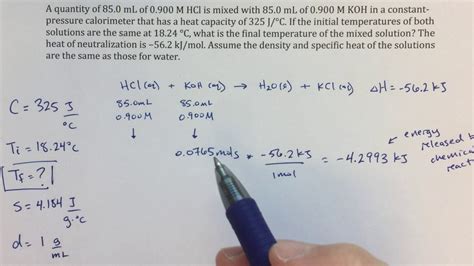 A quantity of 85.0 mL of 0.900 M HCl is mixed with 85.0 mL of 0.900 M KOH in a constant-
pressure calorimeter that has a heat capacity of 325 J/°C. If the initial temperatures of both
solutions are the same at 18.24 °C, what is the final temperature of the mixed solution? The
heat of neutralization is −56.2 kJ/mol. Assume the density and specific heat of the solutions
are the same as those for water.
HCl(aq) + KOH(aq) → H2O(l) + KCl(aq) ΔH = -56.2 kJ
C = 325 J/°C
85.0mL 85.0mL
0.900M 0.900M
↓ ↓
Ti = 18.24°C
0.0765 mols * -56.2 kJ / 1 mol = -4.2993 kJ
energy
released b
chemica
reac
Tf = ?
S = 4.184 J/g·°C
d = 1 g/mL